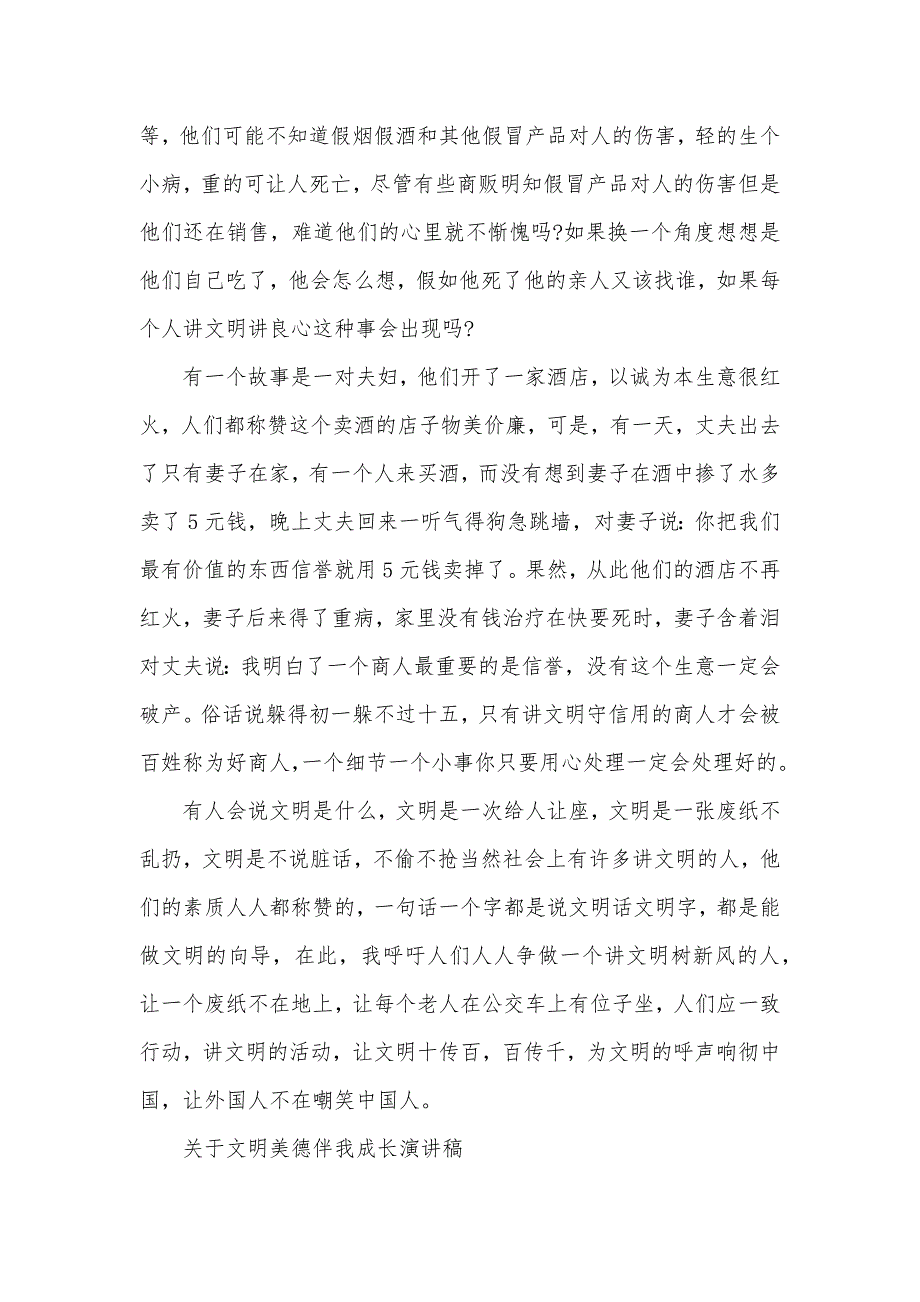 等，他们可能不知道假烟假酒和其他假冒产品对人的伤害，轻的生个
小病，重的可让人死亡，尽管有些商贩明知假冒产品对人的伤害但是
他们还在销售，难道他们的心里就不惭愧吗?如果换一个角度想想是
他们自己吃了，他会怎么想，假如他死了他的亲人又该找谁，如果每
个人讲文明讲良心这种事会出现吗?
有一个故事是一对夫妇，他们开了一家酒店，以诚为本生意很红
火，人们都称赞这个卖酒的店子物美价廉，可是，有一天，丈夫出去
了只有妻子在家，有一个人来买酒，而没有想到妻子在酒中掺了水多
卖了 5 元钱，晚上丈夫回来一听气得狗急跳墙，对妻子说：你把我们
最有价值的东西信誉就用 5 元钱卖掉了。果然，从此他们的酒店不再
红火，妻子后来得了重病，家里没有钱治疗在快要死时，妻子含着泪
对丈夫说：我明白了一个商人最重要的是信誉，没有这个生意一定会
破产。俗话说躲得初一躲不过十五，只有讲文明守信用的商人才会被
百姓称为好商人，一个细节一个小事你只要用心处理一定会处理好的。
有人会说文明是什么，文明是一次给人让座，文明是一张废纸不
乱扔，文明是不说脏话，不偷不抢当然社会上有许多讲文明的人，他
们的素质人人都称赞的，一句话一个字都是说文明话文明字，都是能
做文明的向导，在此，我呼吁人们人人争做一个讲文明树新风的人，
让一个废纸不在地上，让每个老人在公交车上有位子坐，人们应一致
行动，讲文明的活动，让文明十传百，百传千，为文明的呼声响彻中
国，让外国人不在嘲笑中国人。
关于文明美德伴我成长演讲稿